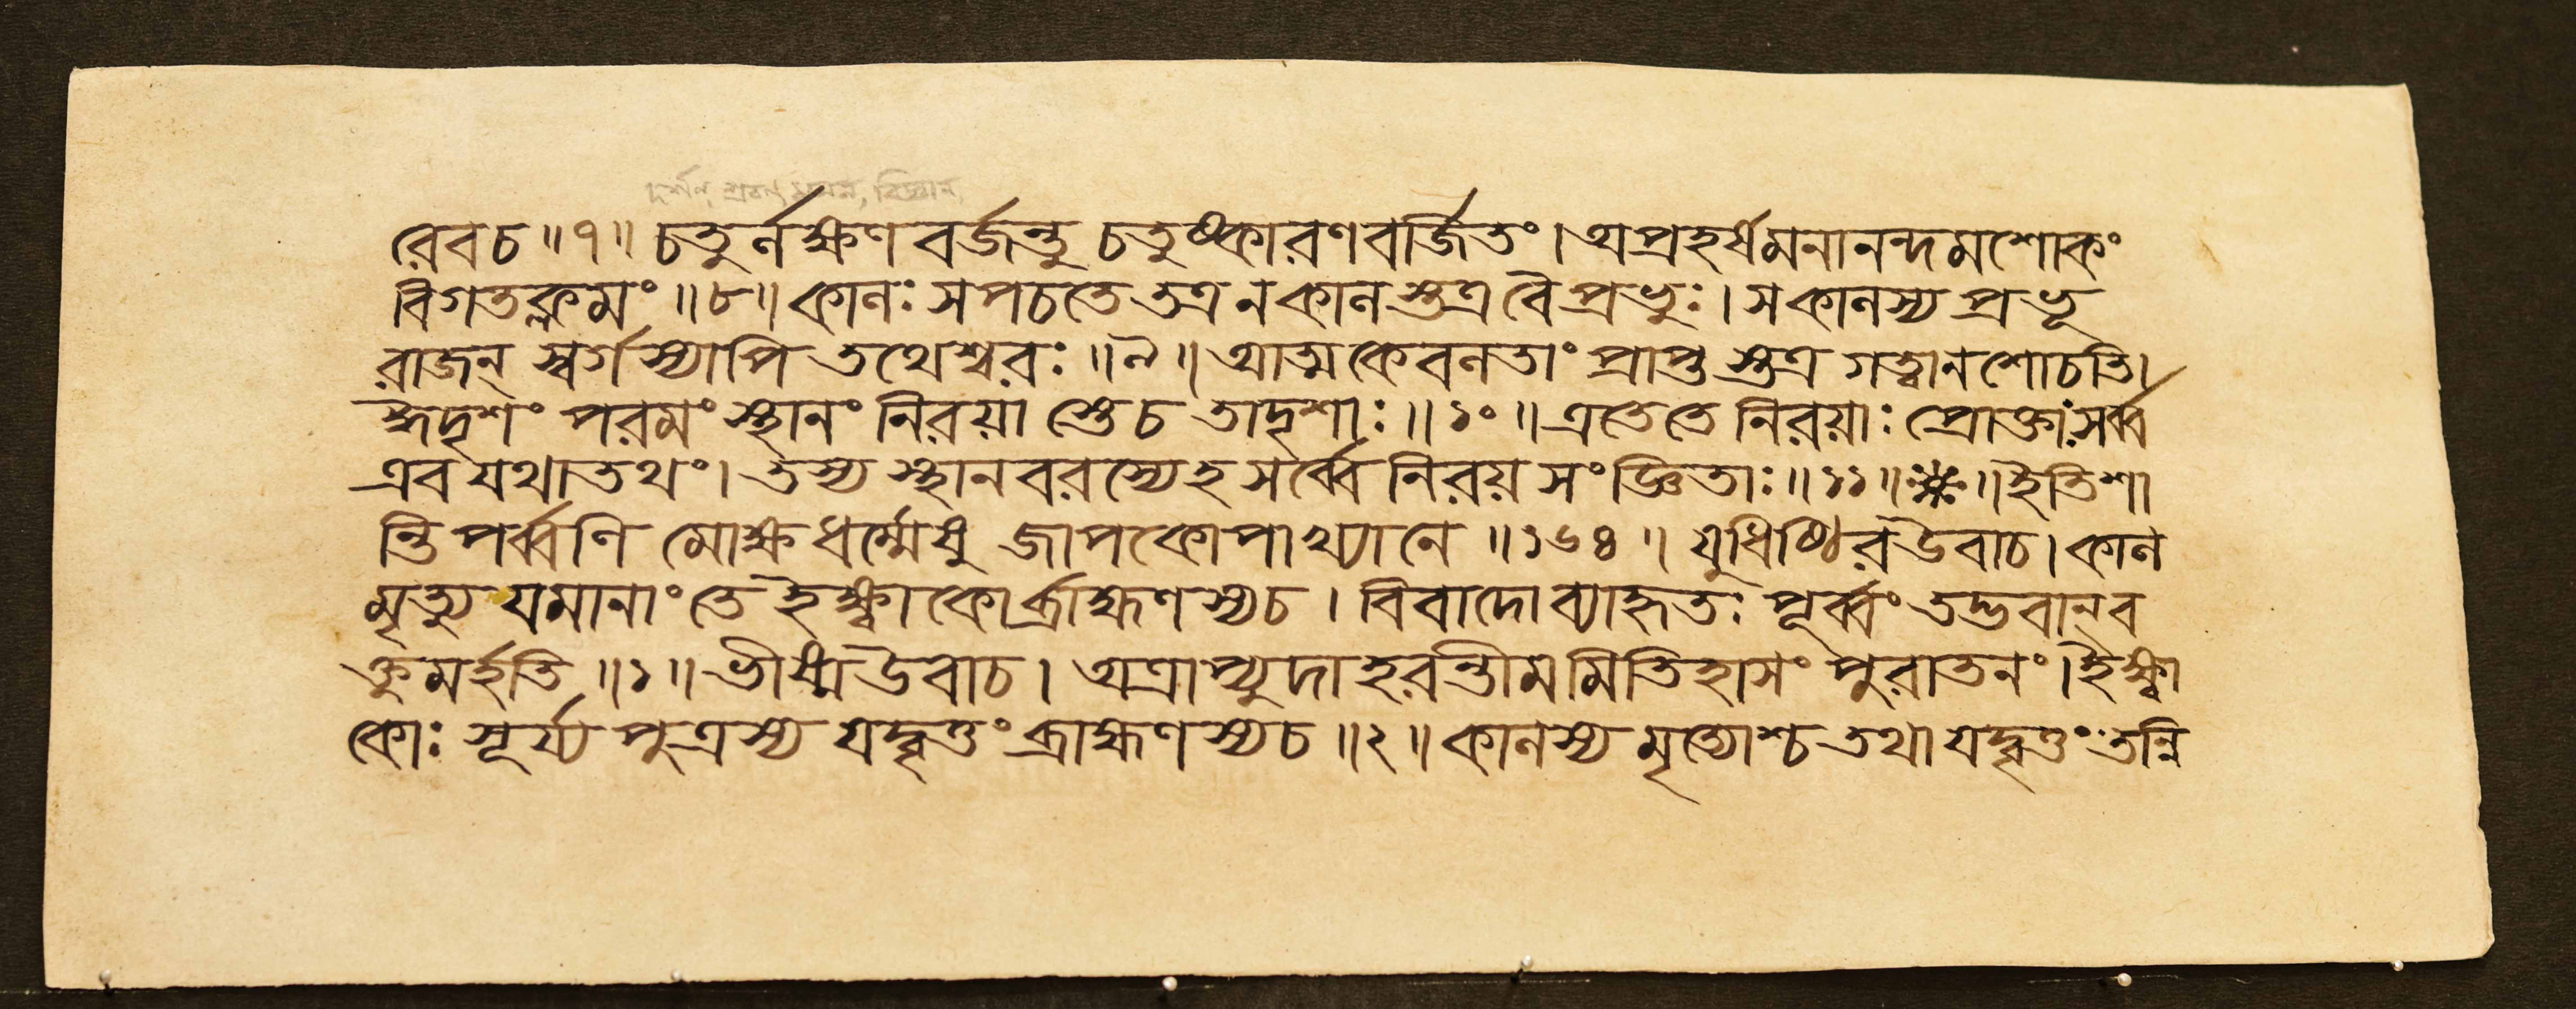 দর্শন, শ্রবণ, মনন, বিজ্ঞান
রেবচ॥৭॥চতুর্লক্ষণ বর্জন্তু চতুষ্কারণবর্জিতং।অপ্রহর্ষমনানন্দমশোকং
বিগতক্লমং॥৮॥কালঃ সপচতে তত্র ন কালস্তত্র বৈ প্রভুঃ।স কালস্য প্রভূ
রাজন্ স্বর্গস্যাপি তথেশ্বরঃ॥৯॥আত্মকেবলতাং প্রাপ্তস্তত্র গত্বা ন শোচতি।
ঈদৃশং পরমং স্থানং নিরয়াস্তে চ তাদৃশাঃ॥১০॥এতে তে নিরয়াঃ প্রোক্তাঃ সর্ব্ব
এব যথাতথং।তস্য স্থানবরস্যেহ সর্ব্বে নিরয়সংজ্ঞিতাঃ॥১১॥❋॥ইতি শা
ন্তি পর্ব্বণি মোক্ষধর্ম্মেষু জাপকোপাখ্যানে॥১৬৪॥যুধিষ্ঠির উবাচ।কাল
মৃত্যু যমানাং তে ইক্ষ্বাকোর্ব্রাহ্মণস্য চ।বিবাদো ব্যাহৃতঃ পূর্ব্বং তদ্ভবান্ ব
ক্তুমর্হতি॥১॥ভীষ্ম উবাচ।অত্রাপ্যুদাহরন্তীমমিতিহাসং পুরাতনং।ইক্ষ্বা
কোঃ সূর্য্য পুত্রস্য যদ্বৃত্তং ব্রাহ্মণস্য চ॥২॥কালস্য মৃত্যোশ্চ তথা যদ্বৃত্তং তন্নি